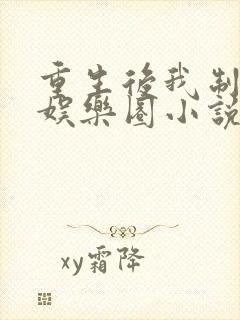 重生後我制
娛樂圈小說
xy霜降